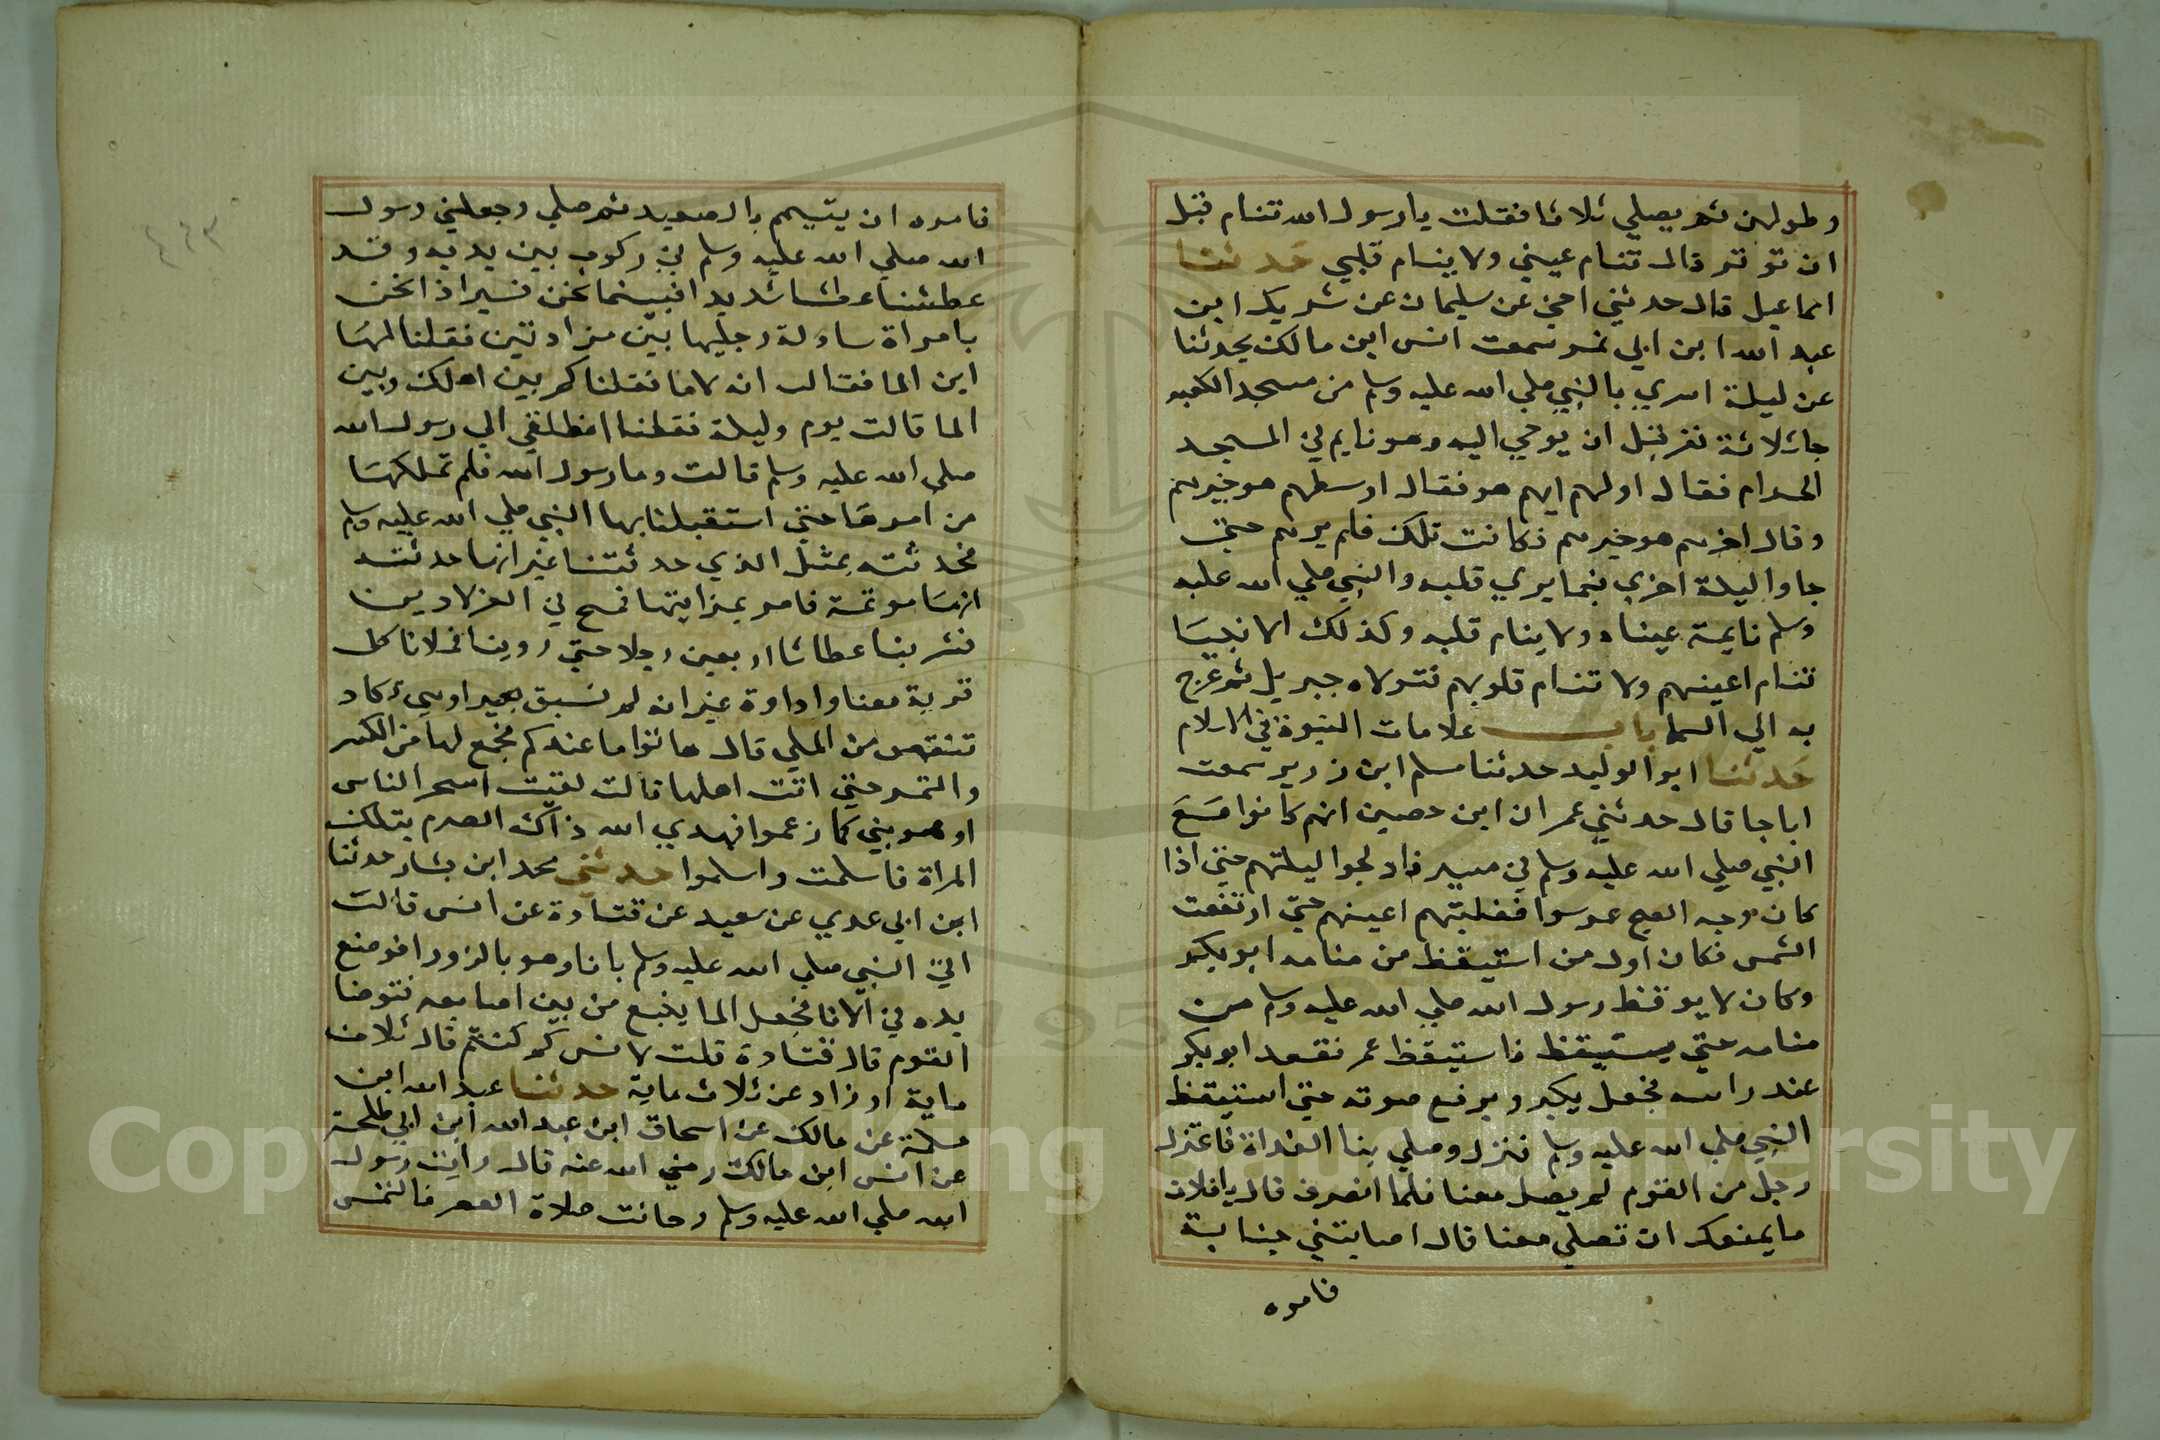 وطولهن ثم يصلي ثلاثا فقلت يا رسول الله تنام قبل
ان توتر قال تنام عيني ولا ينام قلبي حدثنا
اسماعيل قال حدثني اخي عن سليمان عن شريك ابن
عبد الله ابن ابي نمر سمعت انس ابن مالك يحدثنا
عن ليلة اسري بالنبي صلي الله عليه وسلم من مسجد الكعبه
جا ثلاثة نفر قبل ان يوحي اليه وهو نايم في المسجد
الحرام فقال اولهم ايهم هو فقال اوسطهم هو خيرهم
وقال اخرهم هو خيرهم فكانت تلك فلم يرهم حتي
جاوا ليلة اخري فيما يري قلبه والنبي صلي الله عليه
وسلم نايمة عيناه ولا ينام قلبه وكذلك الانبيا
تنام اعينهم ولا تنام قلوبهم فتولاه جبريل ثم عرج
به الي السما باب علامات النبوة في الاسلام
حدثنا ابو الوليد حدثنا سلم ابن زرير سمعت
ابا رجا قال حدثني عمران ابن حصين انهم كانوا مع
النبي صلي الله عليه وسلم في مسير فادلجوا ليلتهم حتي اذا
كان وجه الصبح عرسوا فغلبتهم اعينهم حتي ارتفعت
الشمس فكان اول من استيقظ من منامه ابو بكر
وكان لا يوقظ رسول الله صلي الله عليه وسلم من
منامه حتي يستيقظ فاستيقظ عمر فقعد ابو بكر
عند راسه فجعل يكبر ويرفع صوته حتي استيقظ
النبي صلي الله عليه وسلم فنزل وصلي بنا الغداة فاعتزل
رجل من القوم لم يصل معنا فلما انصرف قال يا فلان
ما يمنعك ان تصلي معنا قال اصابتني جنابة
فامره
فامره ان يتيمم بالصعيد ثم صلي وجعلني رسول
الله صلي الله عليه وسلم في ركوب بين يديه وقد
عطشنا عطشا شديدا فبينما نحن نسير اذا نحن
بامراة سادلة رجليها بين مزادتين فقلنا لها
اين الما فقالت انه لا ما فقلنا كم بين اهلك وبين
الما قالت يوم وليلة فقلنا انطلقي الي رسول الله
صلي الله عليه وسلم قالت وما رسول الله فلم تملكها
من امرها حتي استقبلنا بها النبي صلي الله عليه وسلم
فحدثته بمثل الذي حدثتنا غير انها حدثته
انها موتمة فامر بمزادتيها فمسح في العزلاوين
فشربنا عطاشا اربعين رجلا حتي روينا فملانا كل
قربة معنا واداوة غير انه لم نسق بعيرا وهي تكاد
تنقص من الملي قال هاتوا ما عندكم فجمع لها من الكسر
والتمر حتي اتت اهلها قالت لقيت اسحر الناس
او هو نبي كما زعموا فهدي الله ذاك الصرم بتلك
المراة فاسلمت واسلموا حدثني محمد ابن بشار حدثنا
ابن ابي عدي عن سعيد عن قتادة عن انس قالت
اتي النبي صلي الله عليه وسلم بانا وهو بالزورا فوضع
يده في الانا فجعل الما ينبع من بين اصابعه فتوضا
القوم قال قتادة قلت لانس كم كنتم قال ثلاث
ماية او زاد عن ثلاث ماية حدثنا عبد الله ابن
مسلمة عن مالك عن اسحاق ابن عبد الله ابن ابي طلحة
عن انس ابن مالك رضي الله عنه قال رايت رسول
الله صلي الله عليه وسلم وحانت صلاة العصر فالتمس
٤٤٣
Copyright © King Saud University
1957